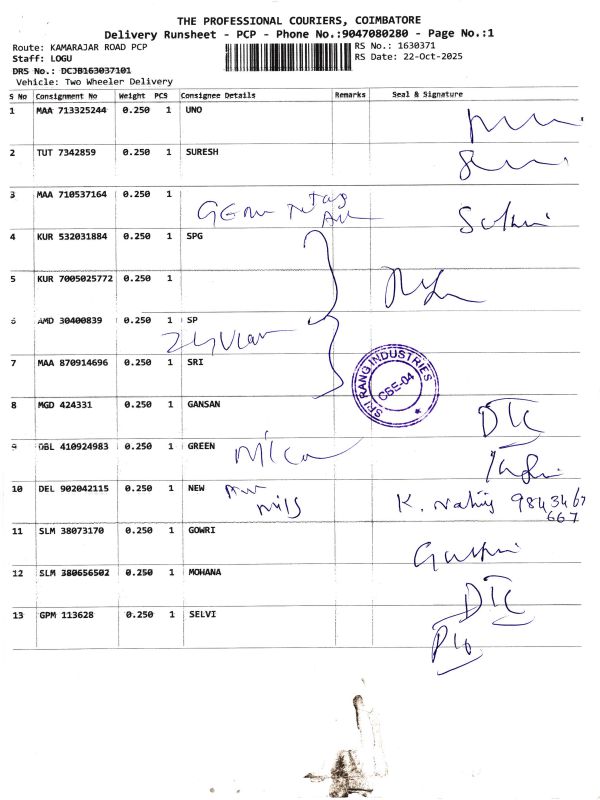 THE PROFESSIONAL COURIERS, COIMBATORE
Delivery Runsheet - PCP - Phone No.:9047080280 - Page No.:1
Route: KAMARAJAR ROAD PCP
Staff: LOGU
DRS No.: DCJB163037101
Vehicle: Two Wheeler Delivery
RS No.: 1630371
RS Date: 22-Oct-2025
S No Consignment No Weight PCS Consignee Details Remarks Seal & Signature
1 MAA 713325244 0.250 1 UNO
2 TUT 7342859 0.250 1 SURESH
3 MAA 710537164 0.250 1
4 KUR 532031884 0.250 1 SPG
5 KUR 7005025772 0.250 1
6 AMD 30400839 0.250 1 SP
7 MAA 870914696 0.250 1 SRI
SRI RANG INDUSTRIES
CBE-04
8 MGD 424331 0.250 1 GANSAN
9 DBL 410924983 0.250 1 GREEN
10 DEL 902042115 0.250 1 NEW
mills
11 SLM 38073170 0.250 1 GOWRI
12 SLM 380656502 0.250 1 MOHANA
13 GPM 113628 0.250 1 SELVI